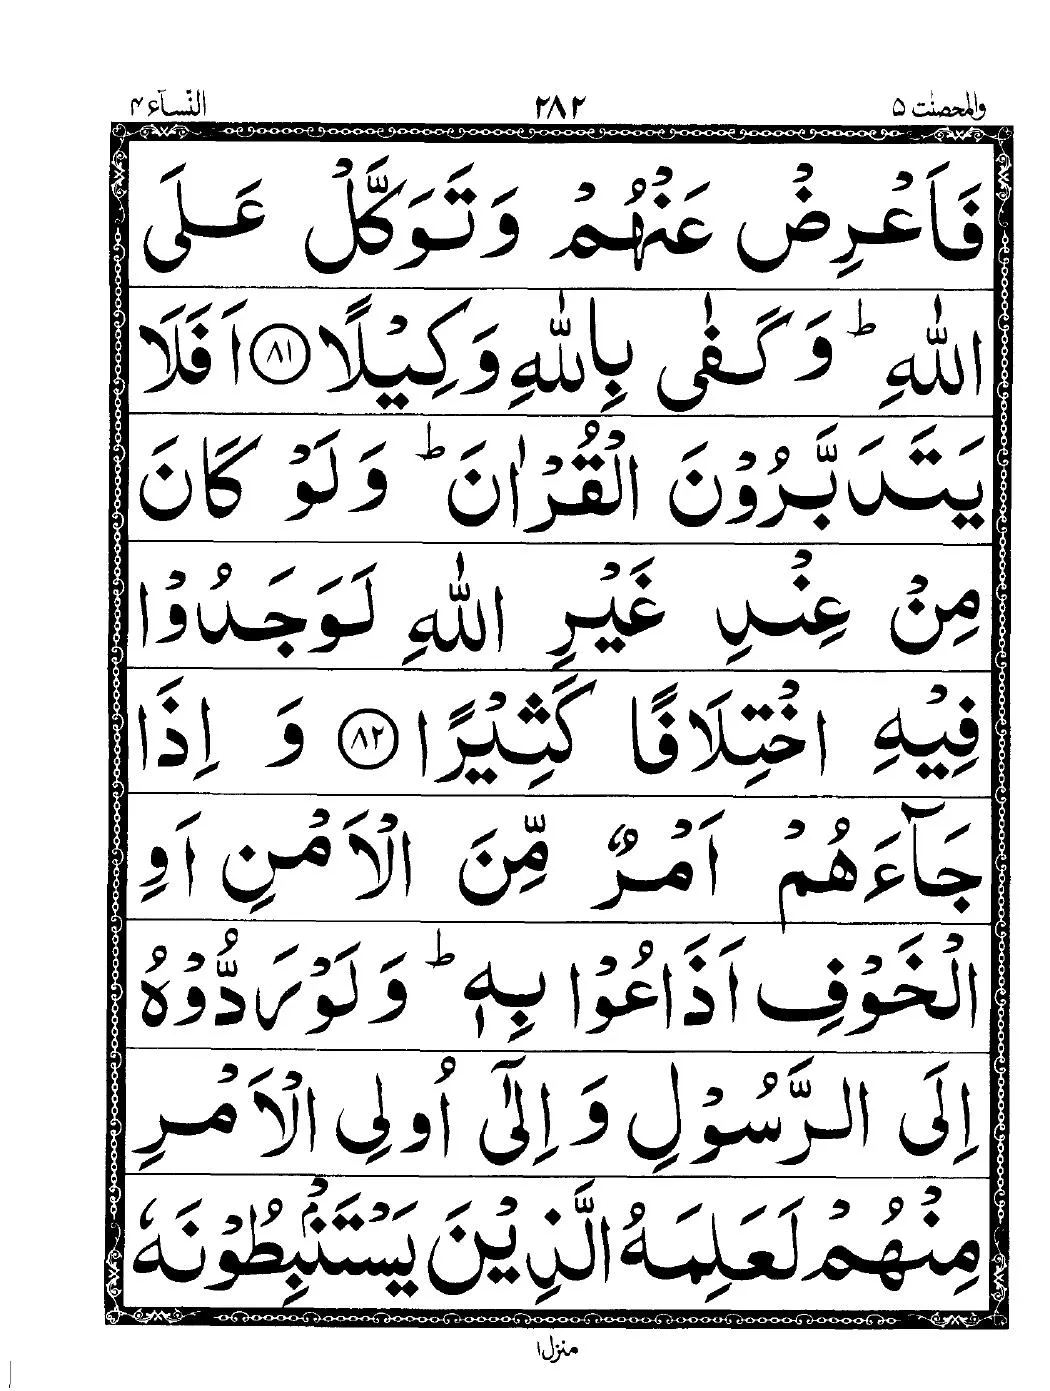 والمحصنٰت ۵ ۲۸۲ النّسآء ۴
فَاَعْرِضْ عَنْهُمْ وَتَوَكَّلْ عَلَى
اللّٰهِ ؕ وَكَفٰى بِاللّٰهِ وَكِيْلًا ﴿۸۱﴾ اَفَلَا
يَتَدَبَّرُوْنَ الْقُرْاٰنَ ؕ وَلَوْ كَانَ
مِنْ عِنْدِ غَيْرِ اللّٰهِ لَوَجَدُوْا
فِيْهِ اخْتِلَافًا كَثِيْرًا ﴿۸۲﴾ وَ اِذَا
جَآءَهُمْ اَمْرٌ مِّنَ الْاَمْنِ اَوِ
الْخَوْفِ اَذَاعُوْا بِهٖ ؕ وَلَوْ رَدُّوْهُ
اِلَى الرَّسُوْلِ وَ اِلٰٓى اُولِى الْاَمْرِ
مِنْهُمْ لَعَلِمَهُ الَّذِيْنَ يَسْتَنْۢبِطُوْنَهٗ
منزل ۱